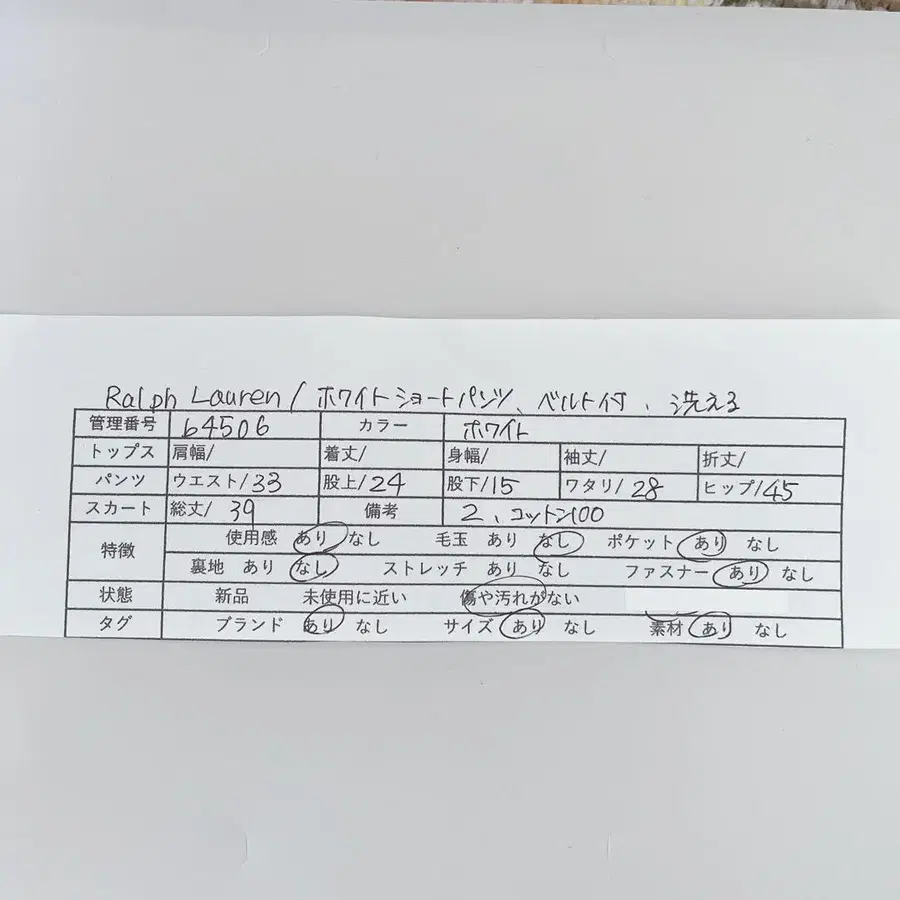 Ralph Lauren/ホワイトショートパンツ、ベルト付、洗える
管理番号 b4506 カラー ホワイト
トップス 肩幅/ 着丈/ 身幅/ 袖丈/ 裄丈/
パンツ ウエスト/33 股上/24 股下/15 ワタリ/28 ヒップ/45
スカート 総丈/39 備考 2、コットン100
特徴 使用感 あり なし 毛玉 あり なし ポケット あり なし
裏地 あり なし ストレッチ あり なし ファスナー あり なし
状態 新品 未使用に近い 傷や汚れがない
タグ ブランド あり なし サイズ あり なし 素材 あり なし